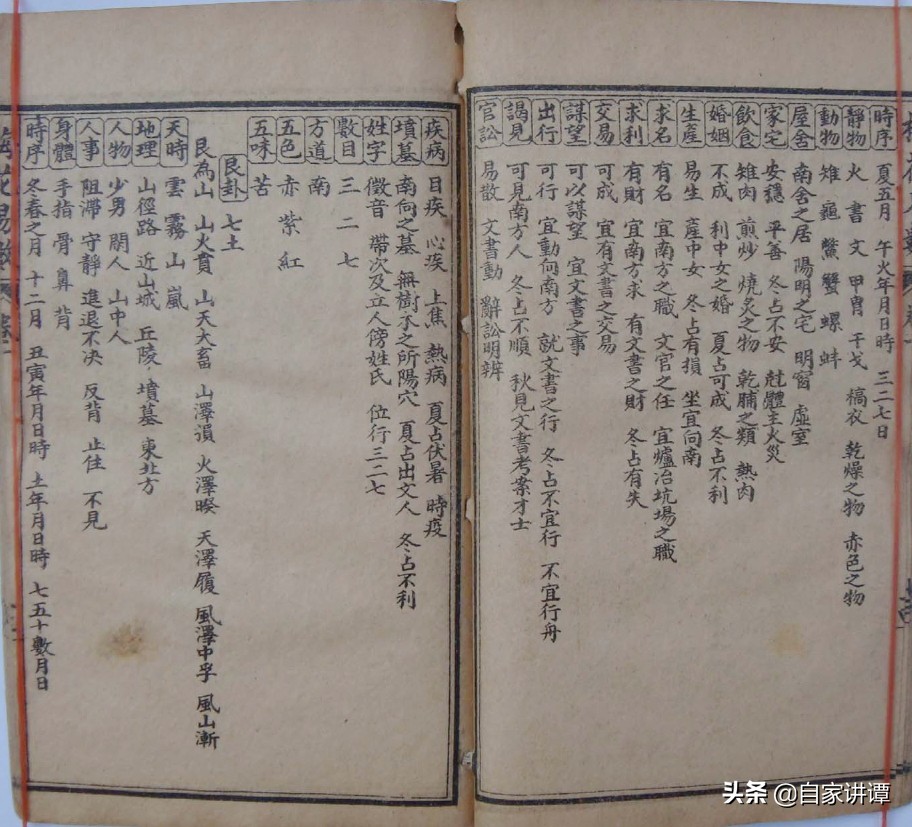 時序 夏五月 午火年月日時 三二七日
靜物 火 書 文 甲冑 干戈 槁衣 乾燥之物 赤色之物
動物 雉 龜 鱉 蟹 螺 蚌
屋舍 南舍之居 陽明之宅 明窗 虛室
家宅 安穩 平善 冬占不安 尅體主火災
飲食 雉肉 煎炒 燒炙之物 乾脯之類 熱肉
婚姻 不成 利中女之婚 夏占可成 冬占不利
生產 易生 產中女 冬占有損 坐宜向南
求名 有名 宜南方之職 文官之任 宜爐冶坑場之職
求利 有財 宜南方求 有文書之財 冬占有失
交易 可成 宜有文書之交易
謀望 可以謀望 宜文書之事
出行 可行 宜動向南方 就文書之行 冬占不宜行 不宜行舟
謁見 可見南方人 冬占不順 秋見文書考案才士
官訟 易散 文書動 辭訟明辨
疾病 目疾 心疾 上焦 熱病 夏占伏暑 時疫
墳墓 南向之墓 無樹木之所陽穴 夏占出文人 冬占不利
姓字 徵音 帶次及立人傍姓氏 位行三二七
數目 三 二 七
方道 南
五色 赤 紫 紅
五味 苦
艮卦 七土
艮為山 山火賁 山天大畜 山澤損 火澤睽 天澤履 風澤中孚 風山漸
天時 雲 霧 山 嵐
地理 山徑路 近山城 丘陵 墳墓 東北方
人物 少男 閑人 山中人
人事 阻滯 守靜 進退不决 反背 止住 不見
身體 手指 骨 鼻 背
時序 冬春之月 十二月 丑寅年月日時 土年月日時 七五十數月日
头条 @自家讲谭